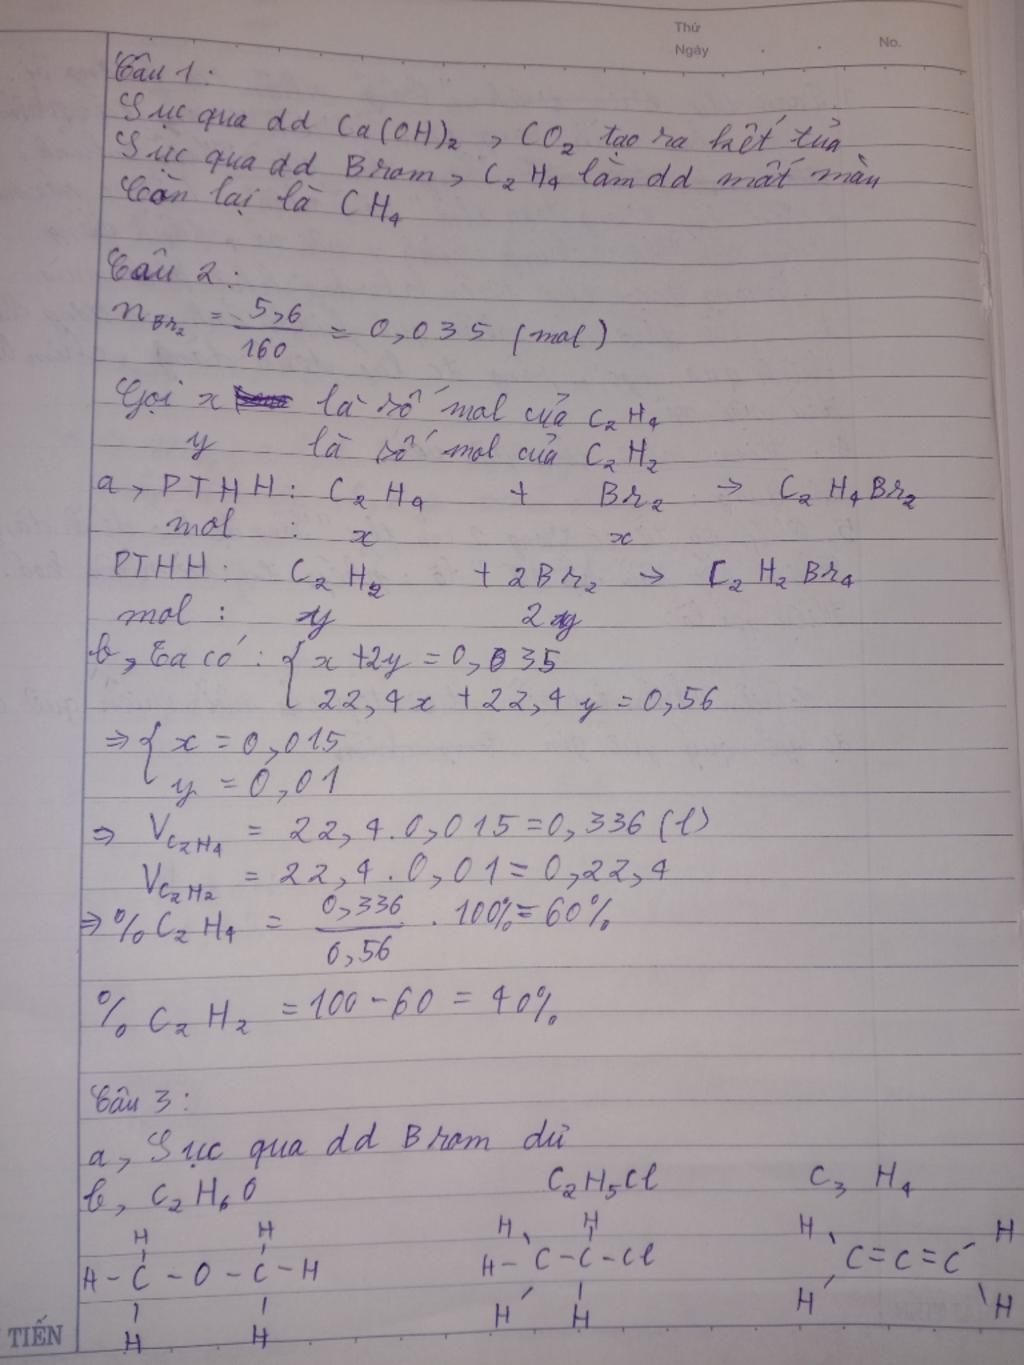 Thứ
Ngày
No.
Câu 1:
Sục qua dd Ca(OH)₂, CO₂ tạo ra kết tủa
Sục qua dd Brom, C₂H₄ làm dd mất màu
Còn lại là CH₄
Câu 2:
n Br₂ = 5,6/160 = 0,035 (mol)
Gọi x là số mol của C₂H₄
y là số mol của C₂H₂
a, PTHH: C₂H₄ + Br₂ → C₂H₄Br₂
mol : x x
PTHH: C₂H₂ + 2Br₂ → C₂H₂Br₄
mol : y 2y
b, Ta có: { x + 2y = 0,035
22,4x + 22,4y = 0,56
⇒ { x = 0,015
y = 0,01
⇒ V C₂H₄ = 22,4.0,015 = 0,336 (l)
V C₂H₂ = 22,4.0,01 = 0,22,4
⇒ % C₂H₄ = 0,336/0,56 . 100% = 60%
% C₂H₂ = 100 - 60 = 40%
Câu 3:
a, Sục qua dd Brom dư
b, C₂H₆O C₂H₅Cl C₃H₄
H H H H H H
H - C - O - C - H H - C - C - Cl C = C = C
H H H H H H
TIẾN